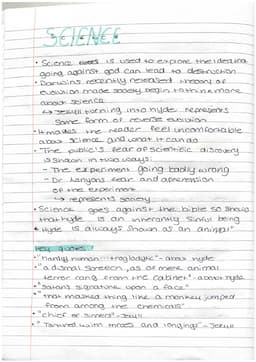 SCIENCE
• Science is used to explore the idea that
going against god can lead to destruction
• Darwins recently revealed theory of
evolution made society begin to think more
about science
↳ Jekyll turning into hyde represents
some form of reverse evolution
• It makes the reader feel uncomfortable
about science and what it can do
• The public's fear of scientific discovery
is shown in two ways:
- The experiment going badly wrong
- Dr Lanyons fear and
of the experiment
↳ represents society
• Science goes against the bible so shows
that hyde is an inherantly sinful being
• Hyde is always shown as an animal"
Key quotes
• "hardly human... troglodytic" - about hyde
• "a dismal screech, as of mere animal
terror rang from the cabinet" - about hyde
• "satans signature upon a face"
• "that masked thing like a monkey jumped
from among the chemicals"
• "chief of sinners" - Jekyll
• "Tortured with throes and longings" - Jekyll